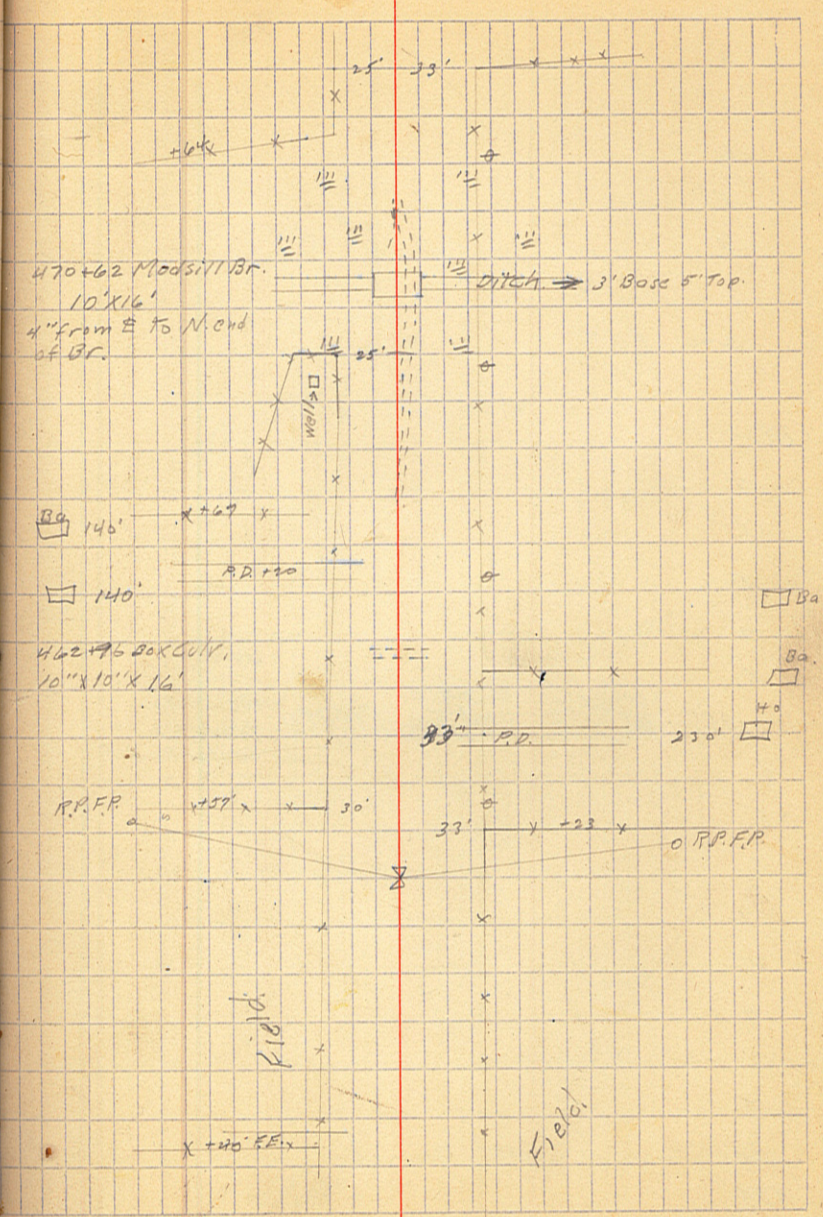 25' 33'
+64
470+62 Modsill Br.
10'X16'
4" from E to N. end
of Br.
Ditch → 3' Base 5' Top.
25'
Well →
Ba 140'
+67
P.D. +20
140'
Ba
462+96 Box Culv.
10"X10"X16'
Ba.
Ho
33' P.D. 230'
R.P.F.P. +57' 30'
33' +23
R.P.F.P.
Field.
Field
+40 F.E.